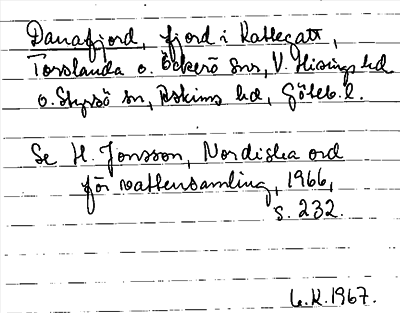 Danafjord, fjord i Kattegatt,
Torslanda o. Öckerö snr, V. Hisings hd
o. Styrsö sn, Askims hd, Göteb. l.
Se H. Jonsson, Nordiska ord
för vattensamling, 1966,
s. 232.
G.K. 1967.